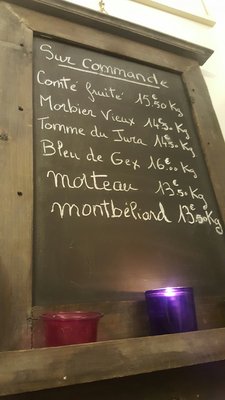 Sur Commande
Comté fruité 15€50 Kg
Morbier Vieux 14€50 Kg
Tomme du Jura 14€50 Kg
Bleu de Gex 16€00 Kg
morteau 13€50 Kg
montbéliard 13€50 Kg